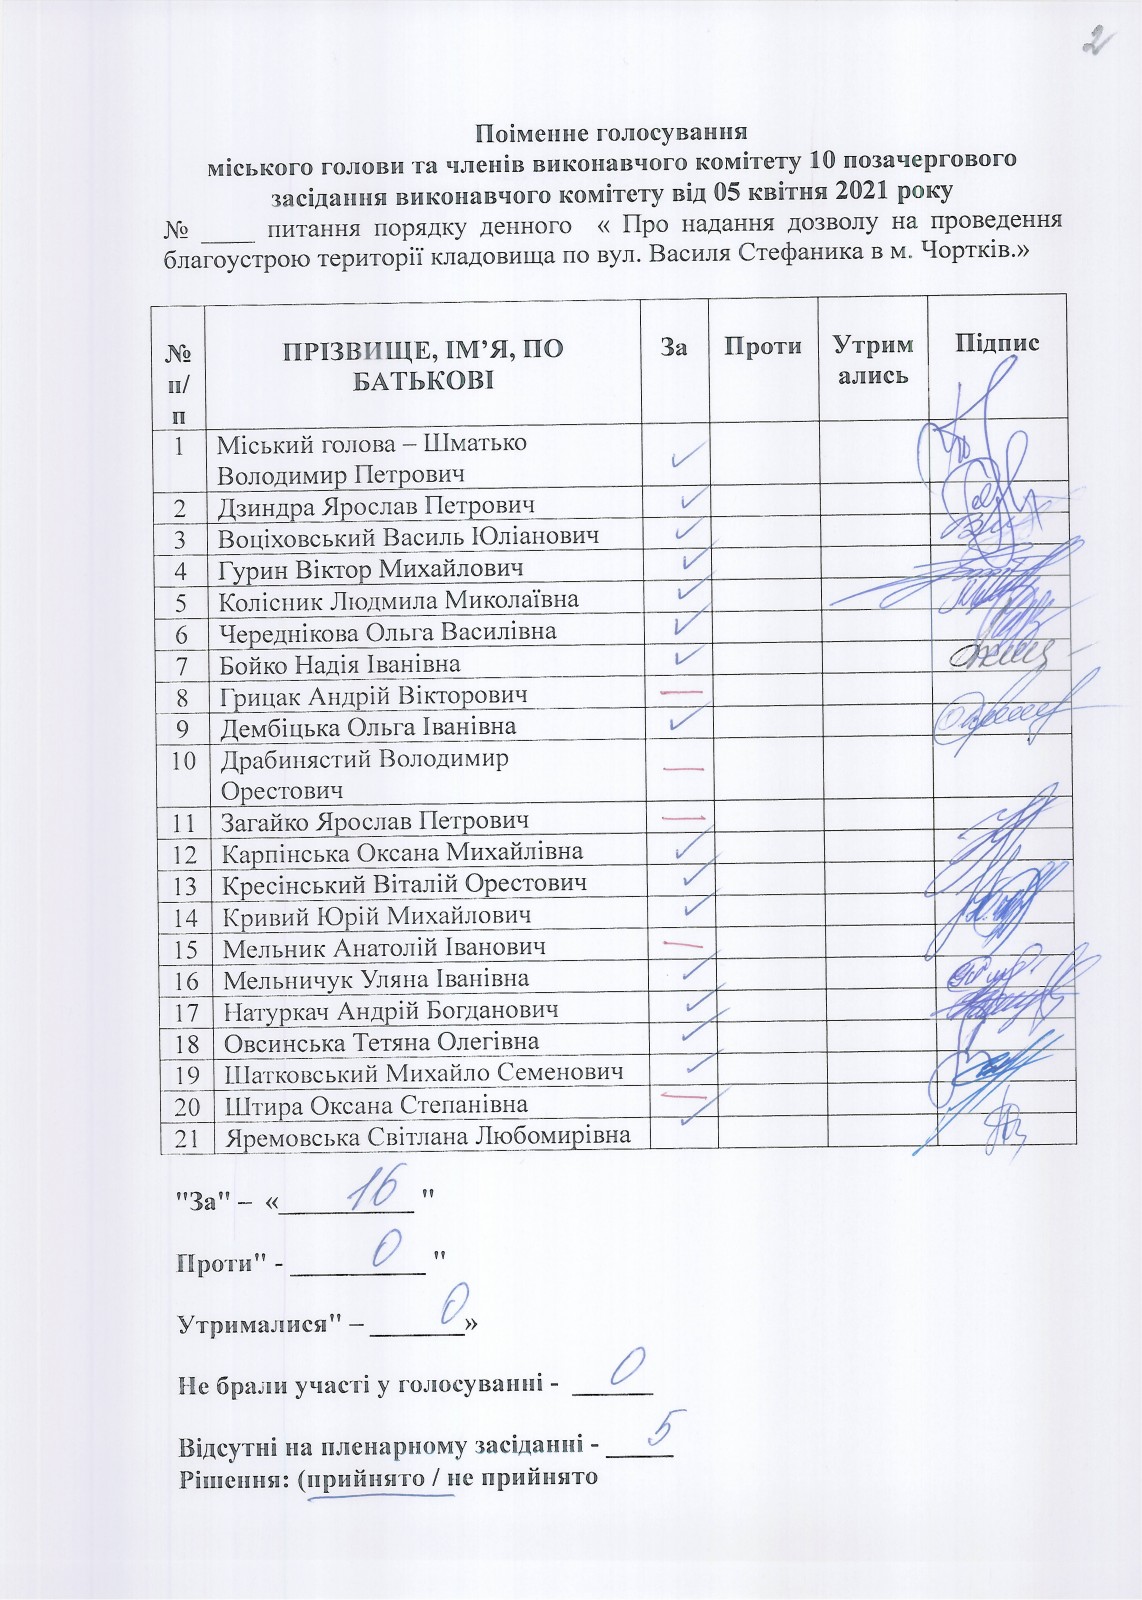 2
Поіменне голосування
міського голови та членів виконавчого комітету 10 позачергового
засідання виконавчого комітету від 05 квітня 2021 року
№ ____ питання порядку денного « Про надання дозволу на проведення
благоустрою території кладовища по вул. Василя Стефаника в м. Чортків.»
№ п/п ПРІЗВИЩЕ, ІМ’Я, ПО БАТЬКОВІ За Проти Утримались Підпис
1 Міський голова – Шматько
Володимир Петрович
2 Дзиндра Ярослав Петрович
3 Воціховський Василь Юліанович
4 Гурин Віктор Михайлович
5 Колісник Людмила Миколаївна
6 Череднікова Ольга Василівна
7 Бойко Надія Іванівна
8 Грицак Андрій Вікторович
9 Дембіцька Ольга Іванівна
10 Драбинястий Володимир
Орестович
11 Загайко Ярослав Петрович
12 Карпінська Оксана Михайлівна
13 Кресінський Віталій Орестович
14 Кривий Юрій Михайлович
15 Мельник Анатолій Іванович
16 Мельничук Уляна Іванівна
17 Натуркач Андрій Богданович
18 Овсинська Тетяна Олегівна
19 Шатковський Михайло Семенович
20 Штира Оксана Степанівна
21 Яремовська Світлана Любомирівна
"За" – « 16 "
Проти" - 0 "
Утрималися" – 0 »
Не брали участі у голосуванні - 0
Відсутні на пленарному засіданні - 5
Рішення: (прийнято / не прийнято